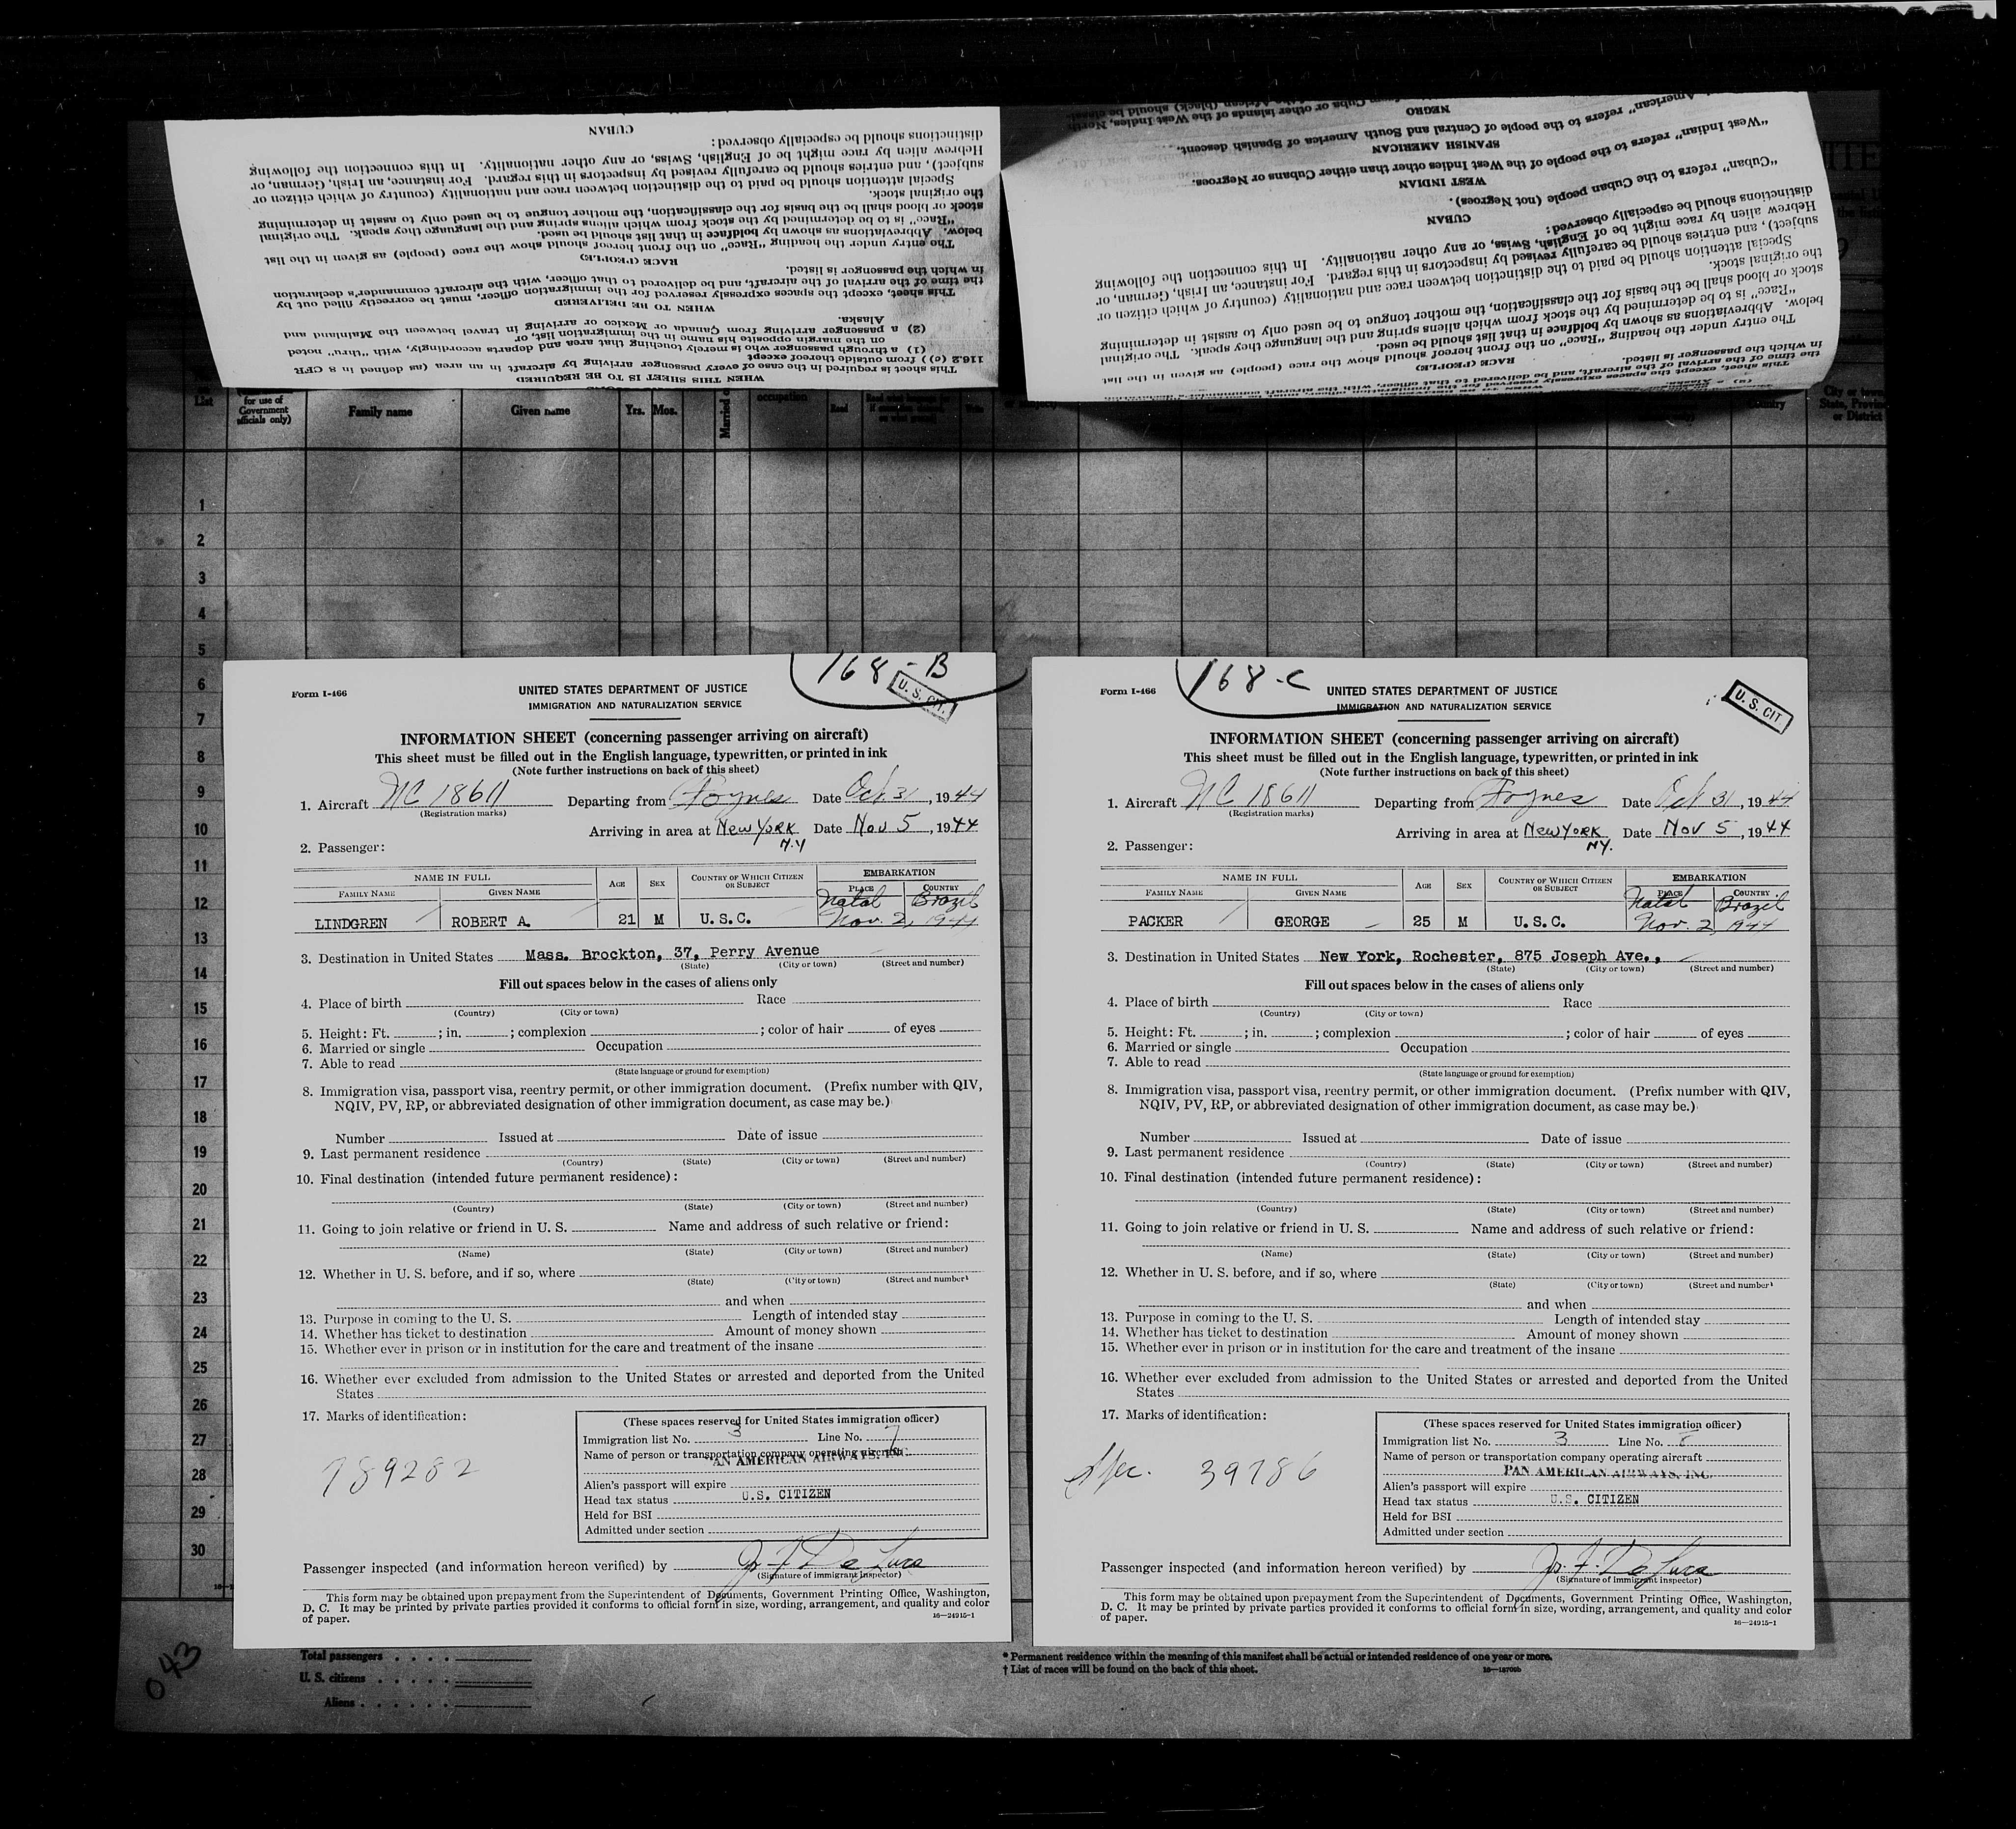 CUBAN
distinctions should be especially observed:
Hebrew alien by race might be of English, Swiss, or any other nationality. In this connection the following
subject), and entries should be carefully revised by inspectors in this regard. For instance, an Irish, German, or
Special attention should be paid to the distinction between race and nationality (country of which citizen or
the original stock.
stock or blood shall be the basis for the classification, the mother tongue to be used only to assist in determining
"Race" is to be determined by the stock from which aliens spring and the language they speak. The original
below. Abbreviations as shown by boldface in that list should be used.
The entry under the heading "Race" on the front hereof should show the race (people) as given in the list
RACE (PEOPLE)
in which the passenger is listed.
the time of the arrival of the aircraft, and be delivered to that officer, with the aircraft commander's declaration
This sheet, except the spaces expressly reserved for the immigration officer, must be correctly filled out by
WHEN TO BE DELIVERED
Alaska.
(2) a passenger arriving from Canada or Mexico or arriving in travel between the Mainland and
on the margin opposite his name in the immigration list, or
(1) a through passenger who is merely touching that area and departs accordingly, with "thru" noted
116.2 (c)) from outside thereof except
This sheet is required in the case of every passenger arriving by aircraft in an area (as defined in 8 CFR
WHEN THIS SHEET IS TO BE REQUIRED
NEGRO
American" refers to the people of Central and South America of Spanish descent.
SPANISH AMERICAN
"West Indian" refers to the people of the West Indies other than either Cubans or Negroes.
WEST INDIAN
"Cuban" refers to the Cuban people (not Negroes).
CUBAN
distinctions should be especially observed:
Hebrew alien by race might be of English, Swiss, or any other nationality. In this connection the following
subject), and entries should be carefully revised by inspectors in this regard. For instance, an Irish, German, or
Special attention should be paid to the distinction between race and nationality (country of which citizen or
the original stock.
stock or blood shall be the basis for the classification, the mother tongue to be used only to assist in determining
"Race" is to be determined by the stock from which aliens spring and the language they speak. The original
below. Abbreviations as shown by boldface in that list should be used.
The entry under the heading "Race" on the front hereof should show the race (people) as given in the list
RACE (PEOPLE)
in which the passenger is listed.
the time of the arrival of the aircraft, and be delivered to that officer, with the aircraft commander's declaration
This sheet, except the spaces expressly reserved for the immigration officer, must be correctly filled out by
List
for use of
Government
officials only)
Family name
Given name
Yrs. Mos.
Married
occupation
Read
City or
State, Province
or District
1
2
3
4
5
6
7
8
9
10
11
12
13
14
15
16
17
18
19
20
21
22
23
24
25
26
27
28
29
30
168-B
U. S. CIT.
Form I-466
UNITED STATES DEPARTMENT OF JUSTICE
IMMIGRATION AND NATURALIZATION SERVICE
INFORMATION SHEET (concerning passenger arriving on aircraft)
This sheet must be filled out in the English language, typewritten, or printed in ink
(Note further instructions on back of this sheet)
1. Aircraft NC 18611 Departing from Foynes Date Oct 31, 1944
(Registration marks)
Arriving in area at New York N.Y Date Nov 5, 1944
2. Passenger:
NAME IN FULL
FAMILY NAME GIVEN NAME AGE SEX COUNTRY OF WHICH CITIZEN OR SUBJECT EMBARKATION
PLACE COUNTRY
Natal Brazil
LINDGREN ROBERT A. 21 M U.S.C. Nov. 2, 1944
3. Destination in United States Mass. Brockton, 37, Perry Avenue
(State) (City or town) (Street and number)
Fill out spaces below in the cases of aliens only
4. Place of birth Race
(Country) (City or town)
5. Height: Ft. ; in. ; complexion ; color of hair of eyes
6. Married or single Occupation
7. Able to read
(State language or ground for exemption)
8. Immigration visa, passport visa, reentry permit, or other immigration document. (Prefix number with QIV,
NQIV, PV, RP, or abbreviated designation of other immigration document, as case may be.)
Number Issued at Date of issue
9. Last permanent residence
(Country) (State) (City or town) (Street and number)
10. Final destination (intended future permanent residence):
(Country) (State) (City or town) (Street and number)
11. Going to join relative or friend in U. S. Name and address of such relative or friend:
(Name) (State) (City or town) (Street and number)
12. Whether in U. S. before, and if so, where
(State) (City or town) (Street and number)
and when
13. Purpose in coming to the U. S. Length of intended stay
14. Whether has ticket to destination Amount of money shown
15. Whether ever in prison or in institution for the care and treatment of the insane
16. Whether ever excluded from admission to the United States or arrested and deported from the United
States
17. Marks of identification:
789282
(These spaces reserved for United States immigration officer)
Immigration list No. 3 Line No. 7
Name of person or transportation company operating aircraft
PAN AMERICAN AIRWAYS, INC.
Alien's passport will expire
Head tax status U.S. CITIZEN
Held for BSI
Admitted under section
Passenger inspected (and information hereon verified) by
(Signature of immigrant inspector)
This form may be obtained upon prepayment from the Superintendent of Documents, Government Printing Office, Washington,
D. C. It may be printed by private parties provided it conforms to official form in size, wording, arrangement, and quality and color
of paper.
16—24915-1
168-C
U. S. CIT
Form I-466
UNITED STATES DEPARTMENT OF JUSTICE
IMMIGRATION AND NATURALIZATION SERVICE
INFORMATION SHEET (concerning passenger arriving on aircraft)
This sheet must be filled out in the English language, typewritten, or printed in ink
(Note further instructions on back of this sheet)
1. Aircraft NC 18611 Departing from Foynes Date Oct 31, 1944
(Registration marks)
Arriving in area at New York NY. Date Nov 5, 1944
2. Passenger:
NAME IN FULL
FAMILY NAME GIVEN NAME AGE SEX COUNTRY OF WHICH CITIZEN OR SUBJECT EMBARKATION
PLACE COUNTRY
Natal Brazil
PACKER GEORGE 25 M U.S.C. Nov. 2, 1944
3. Destination in United States New York, Rochester, 875 Joseph Ave.,
(State) (City or town) (Street and number)
Fill out spaces below in the cases of aliens only
4. Place of birth Race
(Country) (City or town)
5. Height: Ft. ; in. ; complexion ; color of hair of eyes
6. Married or single Occupation
7. Able to read
(State language or ground for exemption)
8. Immigration visa, passport visa, reentry permit, or other immigration document. (Prefix number with QIV,
NQIV, PV, RP, or abbreviated designation of other immigration document, as case may be.)
Number Issued at Date of issue
9. Last permanent residence
(Country) (State) (City or town) (Street and number)
10. Final destination (intended future permanent residence):
(Country) (State) (City or town) (Street and number)
11. Going to join relative or friend in U. S. Name and address of such relative or friend:
(Name) (State) (City or town) (Street and number)
12. Whether in U. S. before, and if so, where
(State) (City or town) (Street and number)
and when
13. Purpose in coming to the U. S. Length of intended stay
14. Whether has ticket to destination Amount of money shown
15. Whether ever in prison or in institution for the care and treatment of the insane
16. Whether ever excluded from admission to the United States or arrested and deported from the United
States
17. Marks of identification:
39786
(These spaces reserved for United States immigration officer)
Immigration list No. 3 Line No. 8
Name of person or transportation company operating aircraft
PAN AMERICAN AIRWAYS, INC.
Alien's passport will expire
Head tax status U.S. CITIZEN
Held for BSI
Admitted under section
Passenger inspected (and information hereon verified) by
(Signature of immigrant inspector)
This form may be obtained upon prepayment from the Superintendent of Documents, Government Printing Office, Washington,
D. C. It may be printed by private parties provided it conforms to official form in size, wording, arrangement, and quality and color
of paper.
16—24915-1
043
Total passengers
U. S. citizens
Aliens
* Permanent residence within the meaning of this manifest shall be actual or intended residence of one year or more.
† List of races will be found on the back of this sheet.